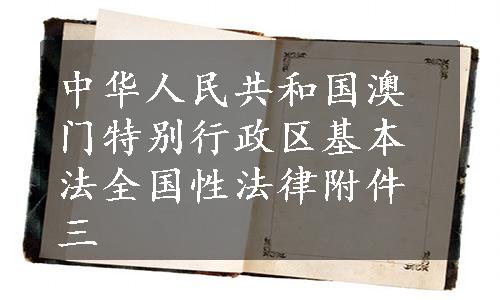 中华人民共和国澳
门特别行政区基本
法全国性法律附件
三